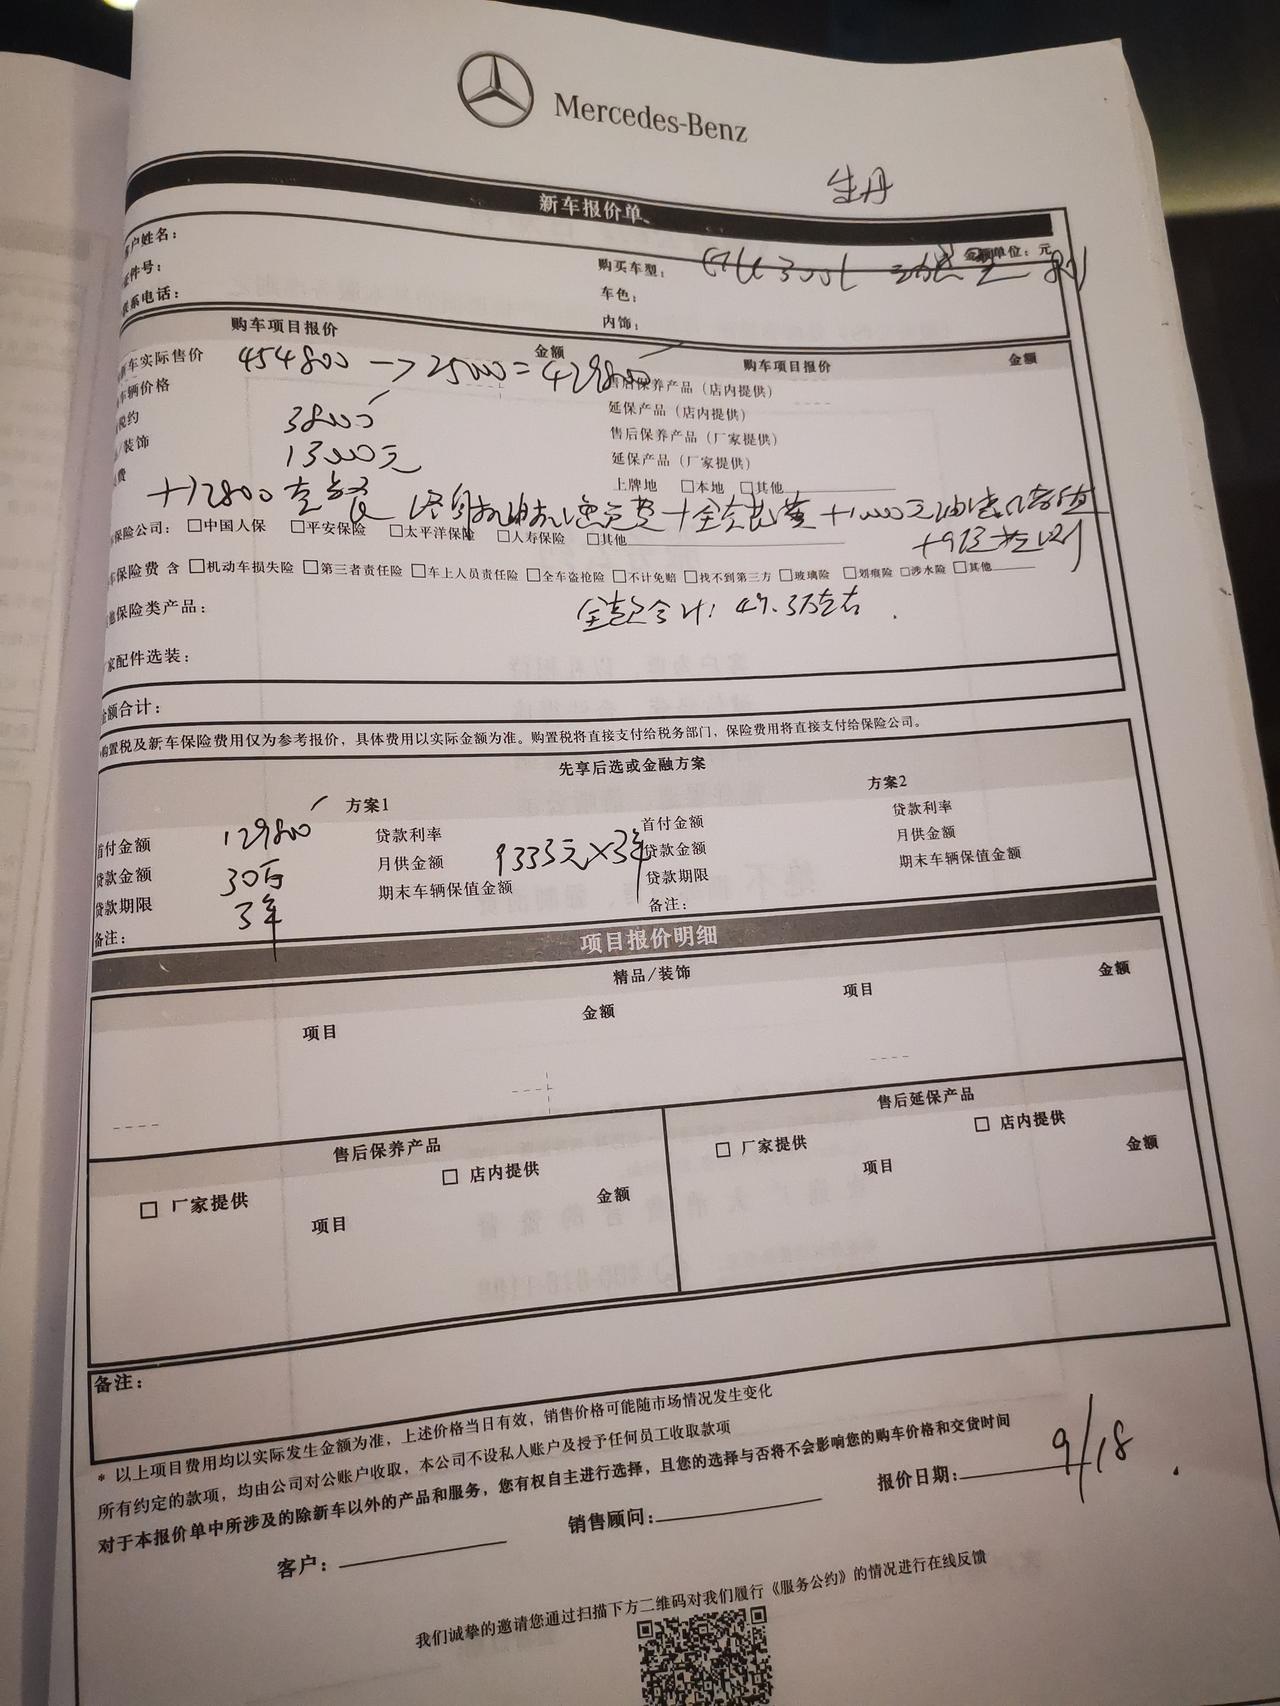 Mercedes-Benz
生丹
新车报价单
金额单位：元
客户姓名：
购买车型： GLC300L 动感型
证件号：
车色：
联系电话：
内饰：
购车项目报价 金额
购车项目报价 金额
新车实际售价 454800 → 25000 = 429800
售后保养产品（店内提供）
车辆价格
延保产品（店内提供）
税约 38000
售后保养产品（厂家提供）
/装饰 13000元
延保产品（厂家提供）
费
上牌地 □本地 □其他
+12800套餐 终身机油机滤免费+全套
保险公司： □中国人保 □平安保险 □太平洋保险 □人寿保险 □其他
车保险费 含 □机动车损失险 □第三者责任险 □车上人员责任险 □全车盗抢险 □不计免赔 □找不到第三方 □玻璃险 □划痕险 □涉水险 □其他
其他保险类产品：
全款合计：47.3万左右
厂家配件选装：
金额合计：
*购置税及新车保险费用仅为参考报价，具体费用以实际金额为准。购置税将直接支付给税务部门，保险费用将直接支付给保险公司。
先享后选或金融方案
方案1
方案2
首付金额 129800 贷款利率
首付金额 贷款利率
贷款金额 30万 月供金额 9333元×3年
贷款金额 月供金额
贷款期限 3年 期末车辆保值金额
贷款期限 期末车辆保值金额
备注：
备注：
项目报价明细
精品/装饰
项目 金额 项目 金额
售后保养产品
售后延保产品
□ 厂家提供 □ 店内提供
□ 厂家提供 □ 店内提供
项目 金额
项目 金额
备注：
* 以上项目费用均以实际发生金额为准，上述价格当日有效，销售价格可能随市场情况发生变化
所有约定的款项，均由公司对公账户收取，本公司不设私人账户及授予任何员工收取款项
对于本报价单中所涉及的除新车以外的产品和服务，您有权自主进行选择，且您的选择与否将不会影响您的购车价格和交货时间
客户： 销售顾问： 报价日期： 9/18
我们诚挚的邀请您通过扫描下方二维码对我们履行《服务公约》的情况进行在线反馈